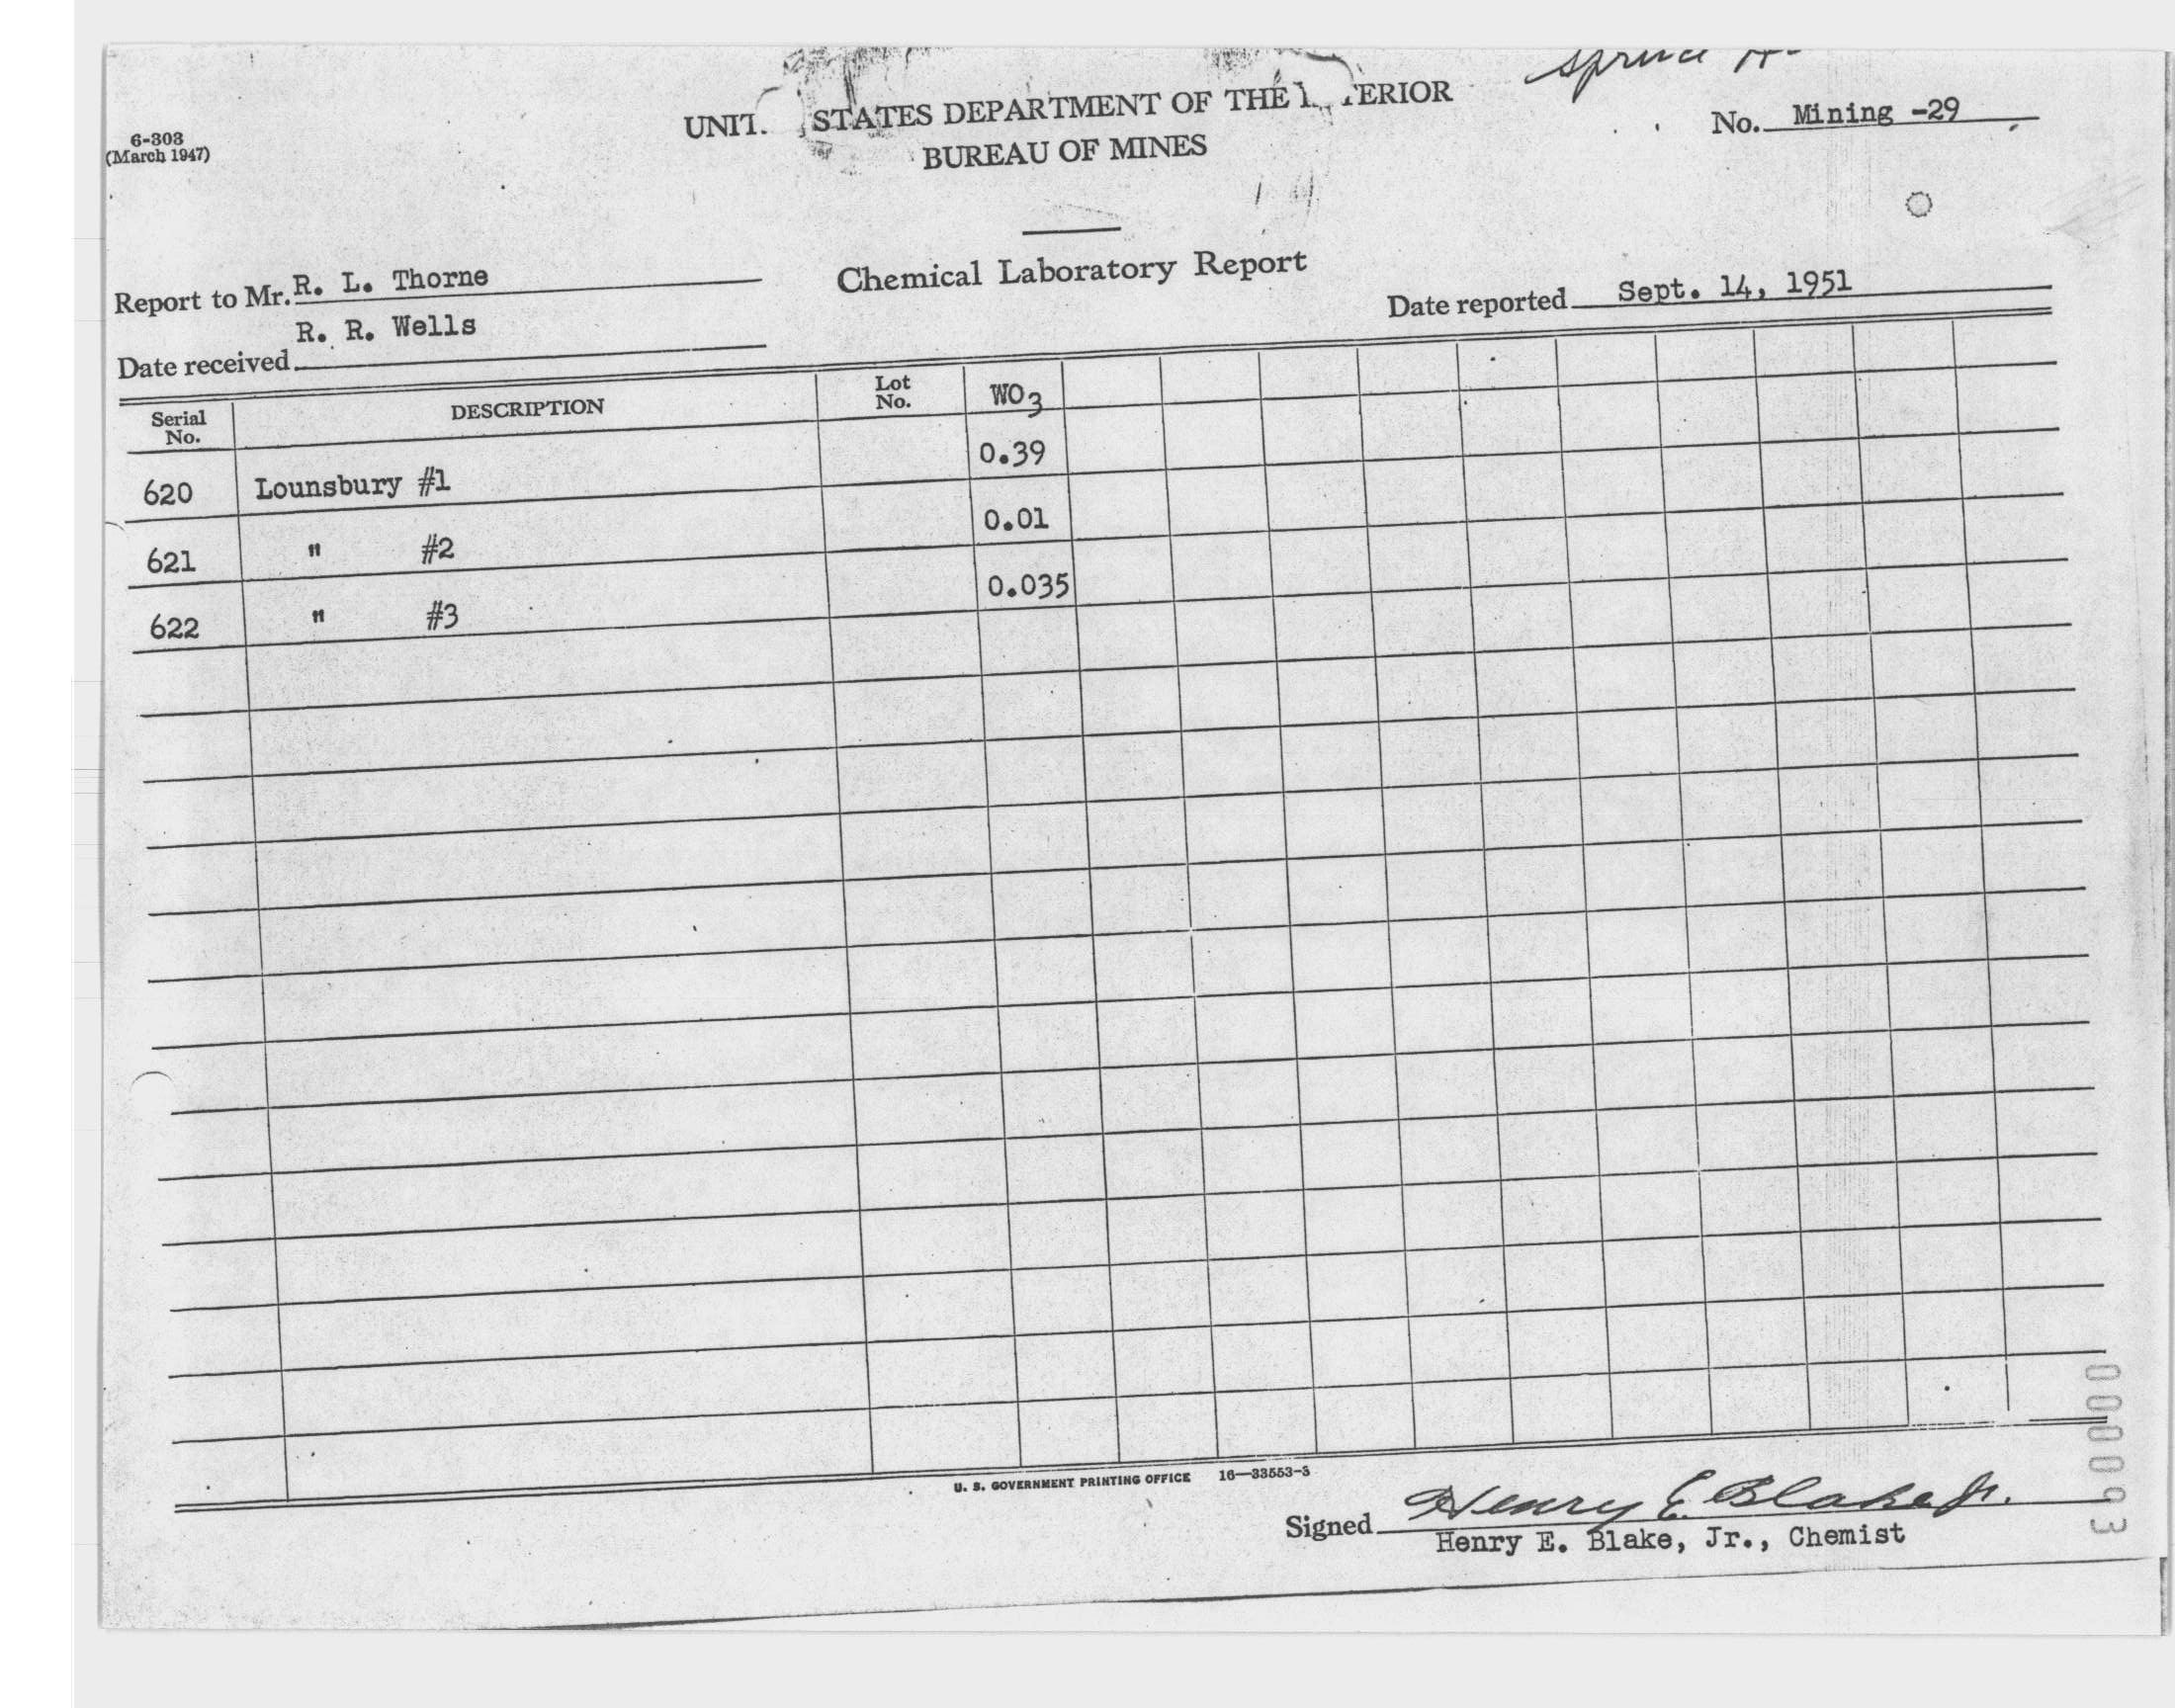 6-303
(March 1947)
STATES DEPARTMENT OF THE
BUREAU OF MINES
No. Mining -29
Chemical Laboratory Report
Report to Mr. R. L. Thorne
R. R. Wells
Date received
Date reported Sept. 14, 1951
Serial No. DESCRIPTION Lot No. WO3
620 Lounsbury #1 0.39
621 " #2 0.01
622 " #3 0.035
U. S. GOVERNMENT PRINTING OFFICE 16—33553-3
Signed Henry E. Blake Jr.
Henry E. Blake, Jr., Chemist
000093